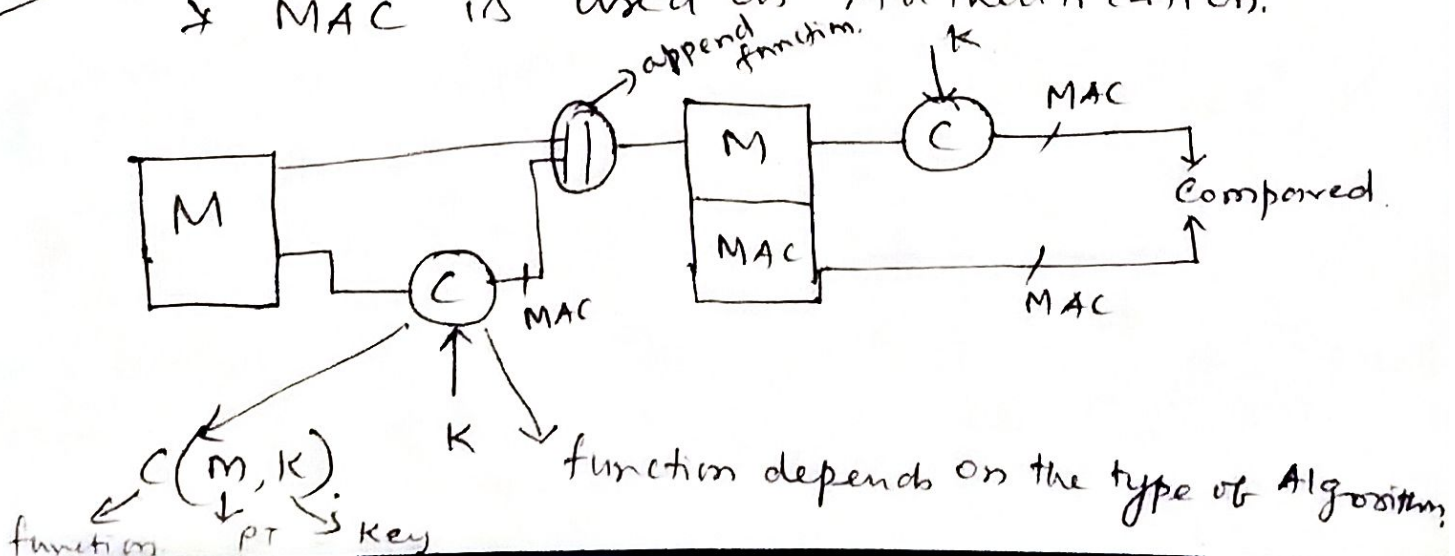 * MAC is used
append
function.
K
MAC
||
M
C
M
MAC
Compared.
C
MAC
MAC
K
C(m, K);
function depends on the type of Algorithm,
function PT Key